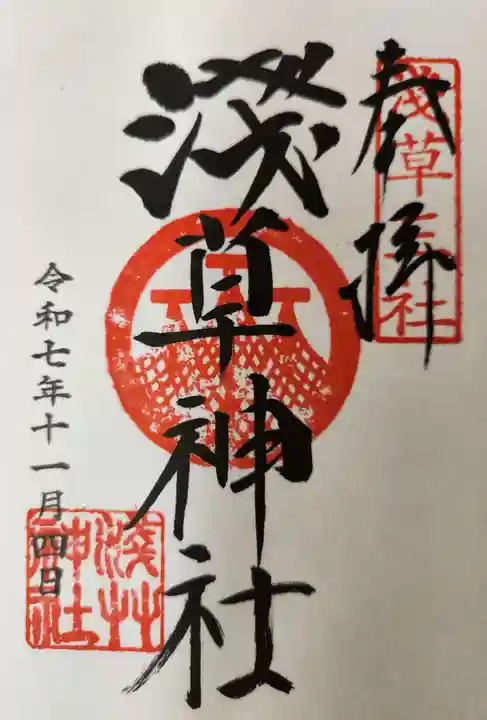 奉拝
浅草三社
淺草神社
令和七年十一月四日
淺草
神社